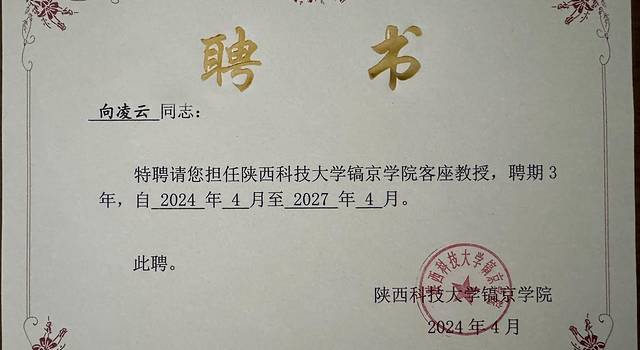 聘 书
向凌云 同志：
特聘请您担任陕西科技大学镐京学院客座教授，聘期 3
年，自 2024 年 4 月至 2027 年 4 月。
此聘。
陕西科技大学镐京学院
陕西科技大学镐京学院
2024 年 4 月